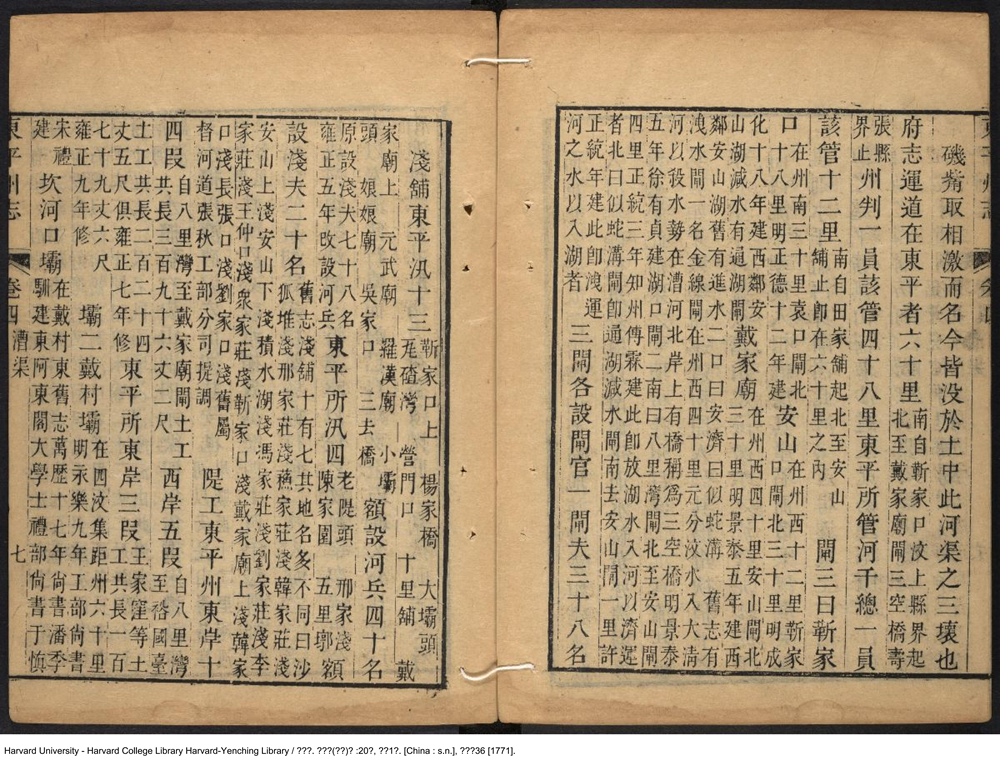 磯觜取相激而名今皆没於土中此河渠之三壞也
府志運道在東平者六十里南自靳家口汶上縣界起
北至戴家廟閘三空橋壽
張縣
界止州判一員該管四十八里東平所管河千總一員
該管十二里南自田家舖起北至安山
舖止卽在六十里之內閘三曰靳家
口在州南三十里袁口閘北
十八里明正德十二年建安山在州西十二里靳家
口閘北三十里明成
化十八年建西鄰安
山湖減水有退湖閘戴家廟在州西四十里安山閘北
三十里明景泰五年建西
鄰安山湖舊有進水二口曰安濟曰似蛇溝舊志有
洩水閘一名金線閘在州西四十里元分汶水入大清
河以殺水勢在漕河北岸上有橋稱爲三空橋明景泰
五年徐有貞建湖口閘二南曰八里灣閘北至安山閘
四里正統三年知州傅霖建此卽放湖水入河以濟運
者北曰似蛇溝閘卽通湖減水閘南去安山閘一里許
正統年建此卽洩運
河之水以入湖者三閘各設閘官一閘夫三十八名
淺舖東平汛十三靳家口上 楊家橋 大壩頭
㼽䃮灣 營門口 十里舖 戴
家廟上 元武廟 羅漢廟 小壩
頭 娘娘廟 吳家口 三去橋額設河兵四十名
原設淺夫七十八名
雍正五年改設河兵東平所汛四老隄頭 邢家淺
陳家園 五里墎額
設淺夫二十名舊志淺舖十有七其地名多不同曰沙
孤堆淺那家莊淺蘸家莊淺韓家莊淺
安山上淺安山下淺積水湖淺馮家莊淺劉家莊淺李
家莊淺王仲口淺衆家莊淺靳家口淺戴家廟上淺韓家
口淺長張口淺劉家口淺舊屬
督河道張秋工部分司提調隄工東平州東岸十
四段自八里灣至戴家廟閘土工
共長三百九十六丈二尺西岸五段自八里灣
至褡國臺
土工共長二百二十四
丈五尺俱雍正七年修東平所東岸三段王家窪等土
工共長一百
七十九丈六尺
雍正九年修壩二戴村壩在四汶集距州六十里
明永樂九年工部尚書
宋禮
建坎河口壩在戴村東舊志萬歷十七年尚書潘季
馴建東阿東閣大學士禮部尚書于慎
東平州志 卷四 漕渠 七
Harvard University - Harvard College Library Harvard-Yenching Library / ???. ???(??)? :20?, ??1?. [China : s.n.], ???36 [1771].